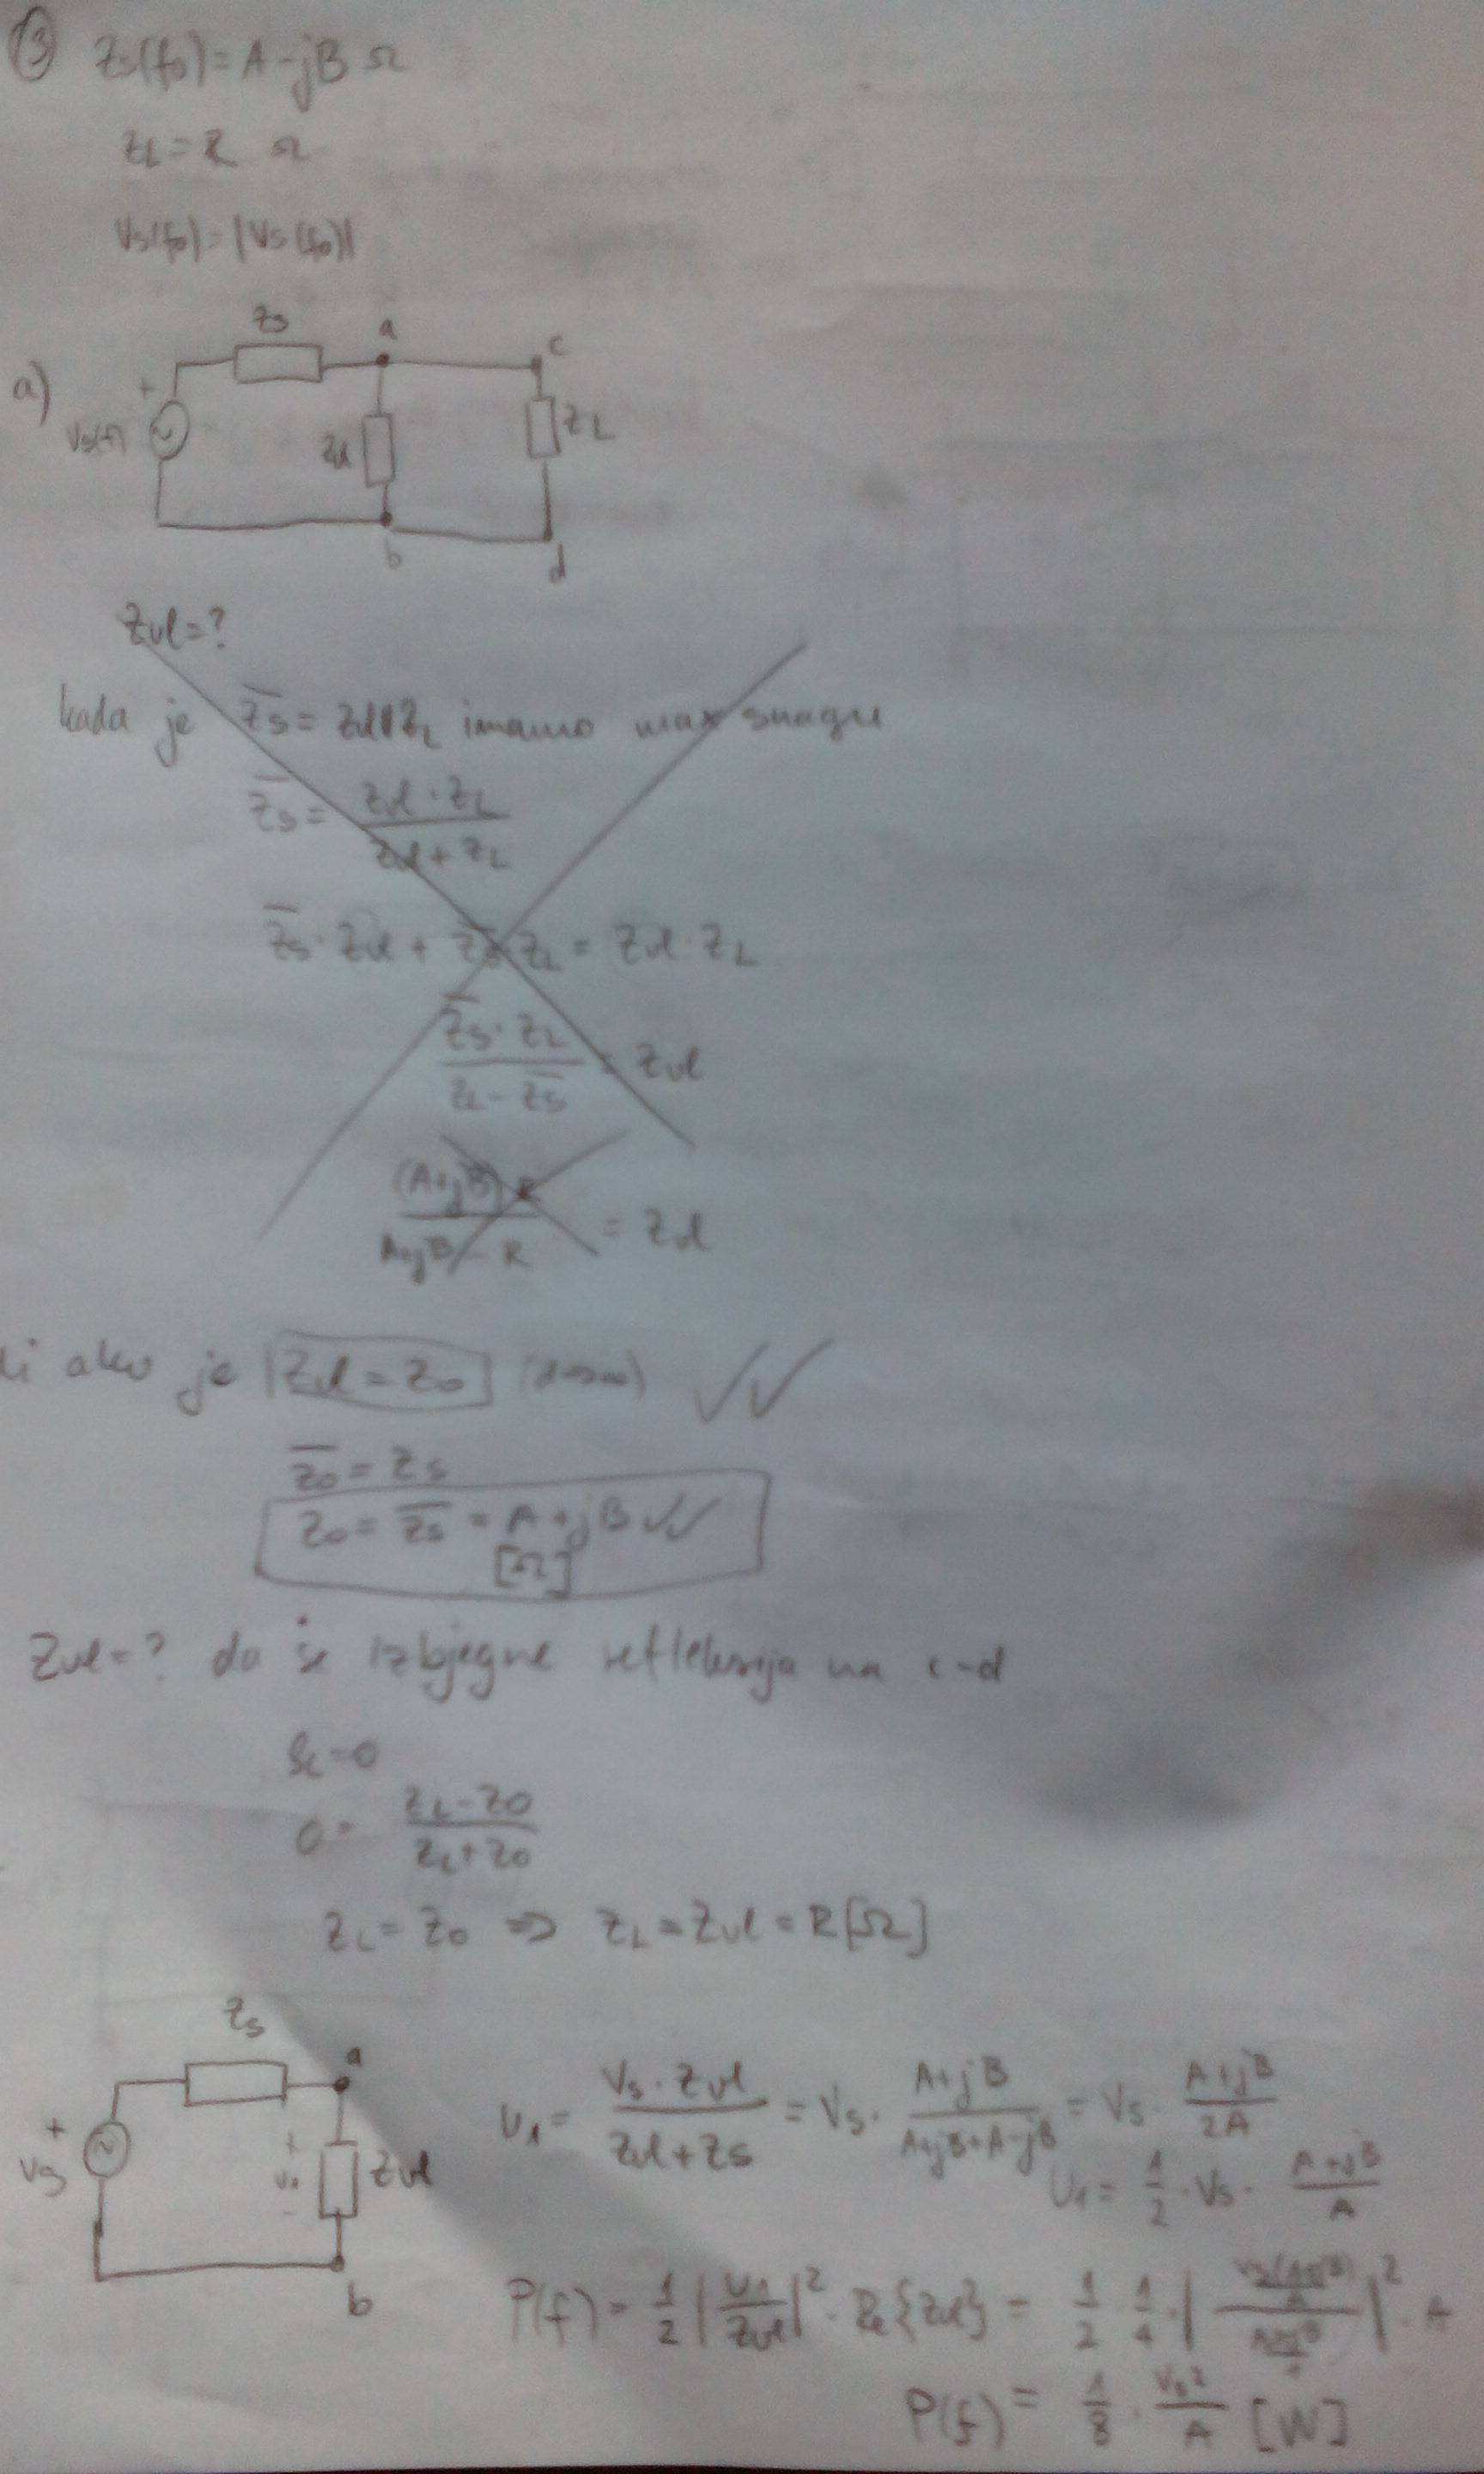 ③ Zs(f0) = A - jB Ω
ZL = R Ω
Vs(f0) = |Vs(f0)|
a)
Zs a c
+
Vs(f) Zul ZL
b d
Zul = ?
kada je \overline{Zs} = Zul||ZL imamo max snagu
\overline{Zs} = \frac{Zul · ZL}{Zul + ZL}
\overline{Zs} · Zul + \overline{Zs} ZL = Zul · ZL
\frac{\overline{Zs} · ZL}{ZL - \overline{Zs}} = Zul
\frac{(A+jB) R}{A+jB - R} = Zul
li ako je Zul = Z0 (d→∞) ✓✓
\overline{Z0} = Zs
Z0 = \overline{Zs} = A + jB ✓✓
[Ω]
Zul = ? da se izbjegne refleksija na c-d
= 0
0 = \frac{ZL - Z0}{ZL + Z0}
ZL = Z0 ⇒ ZL = Zul = R [Ω]
Zs a
+
Vs + U1 - Zul
b
U1 = \frac{Vs · Zul}{Zul + Zs} = Vs · \frac{A+jB}{A+jB+A-jB} = Vs · \frac{A+jB}{2A}
U1 = \frac{1}{2} · Vs · \frac{A+jB}{A}
P(f) = \frac{1}{2} |\frac{U1}{Zul}|² · Re{Zul} = \frac{1}{2} · \frac{1}{4} · | |² · A
P(f) = \frac{1}{8} · \frac{Vs²}{A} [W]